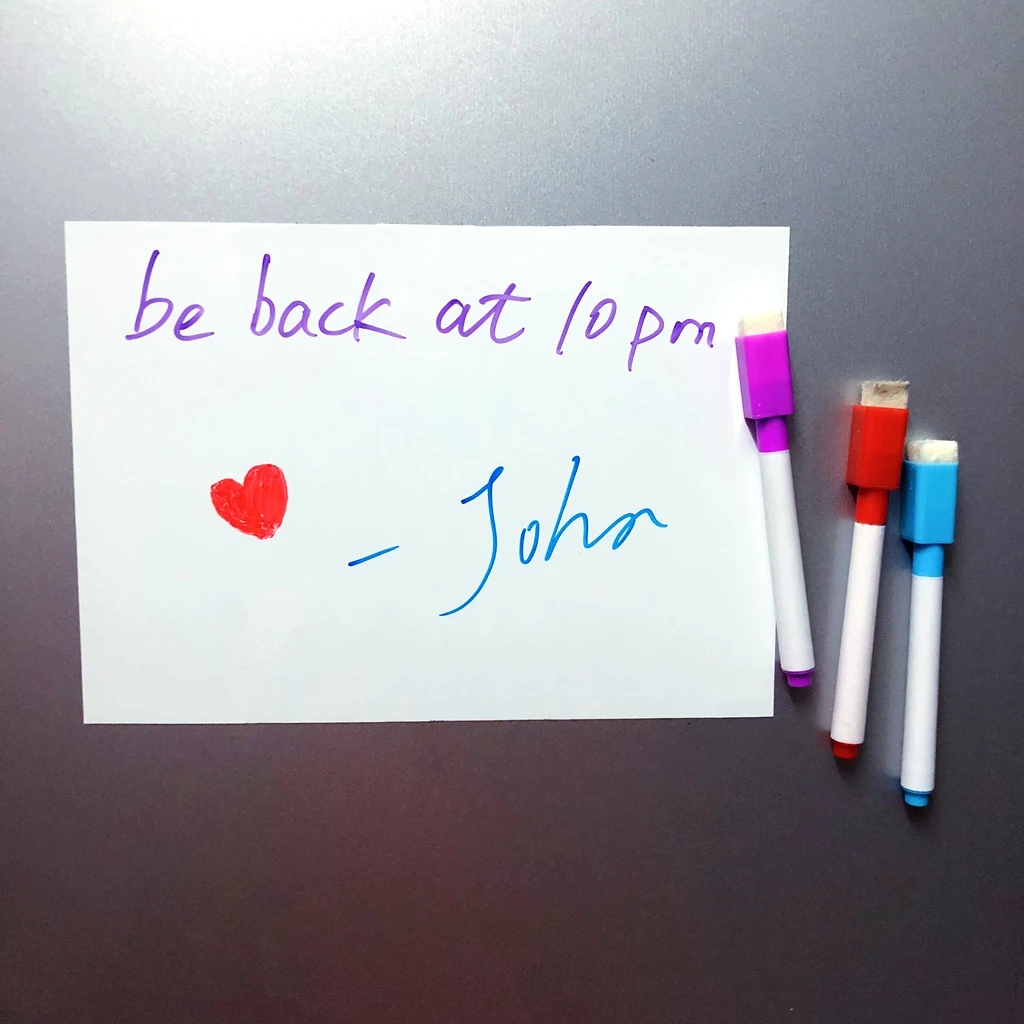 be back at 10 pm
- John